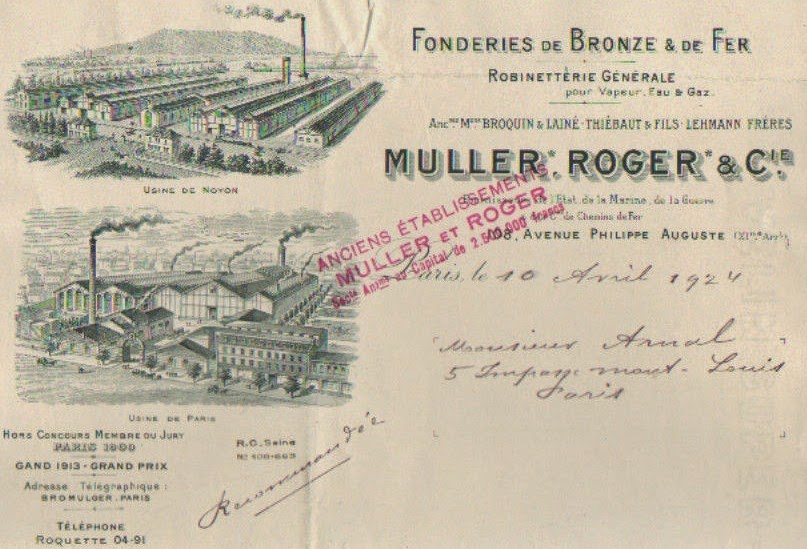 FONDERIES DE BRONZE & DE FER
ROBINETTERIE GÉNÉRALE
pour Vapeur, Eau & Gaz.
ANC.NES M.ONS BROQUIN & LAINÉ - THIÉBAUT & FILS - LEHMANN FRÈRES
MULLER*, ROGER* & C.IE
de l'Etat, de la Marine, de la Guerre
de Chemins de Fer
108, AVENUE PHILIPPE AUGUSTE (XIme Arrt)
ANCIENS ÉTABLISSEMENTS
MULLER ET ROGER
Sté Anme au Capital de 2.500.000 francs
Paris, le 10 Avril 1924
Monsieur Arnal
5 Impasse mont-Louis
Paris
USINE DE NOYON
USINE DE PARIS
HORS CONCOURS MEMBRE DU JURY
PARIS 1900
GAND 1913 - GRAND PRIX
Adresse Télégraphique :
BROMULGER-PARIS
TÉLÉPHONE
ROQUETTE 04-91
R.C. Seine
No 108-663
Recommandée